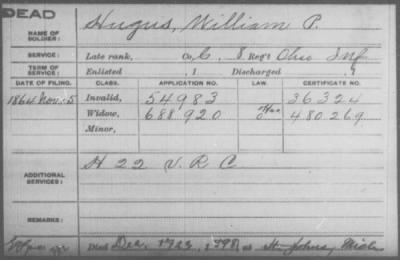 DEAD
NAME OF SOLDIER: Hugus, William P.
SERVICE: Late rank, Co. C, 8 Reg't Ohio Inf
TERM OF SERVICE: Enlisted , 1 Discharged , 1
DATE OF FILING. CLASS. APPLICATION NO. LAW. CERTIFICATE NO.
1864 Nov. 5 Invalid, 54983 36324
Widow, 688920 480269
Minor,
ADDITIONAL SERVICES: H 22 V. R. C
REMARKS:
Died Dec. 1898, at St. Johns, Mich